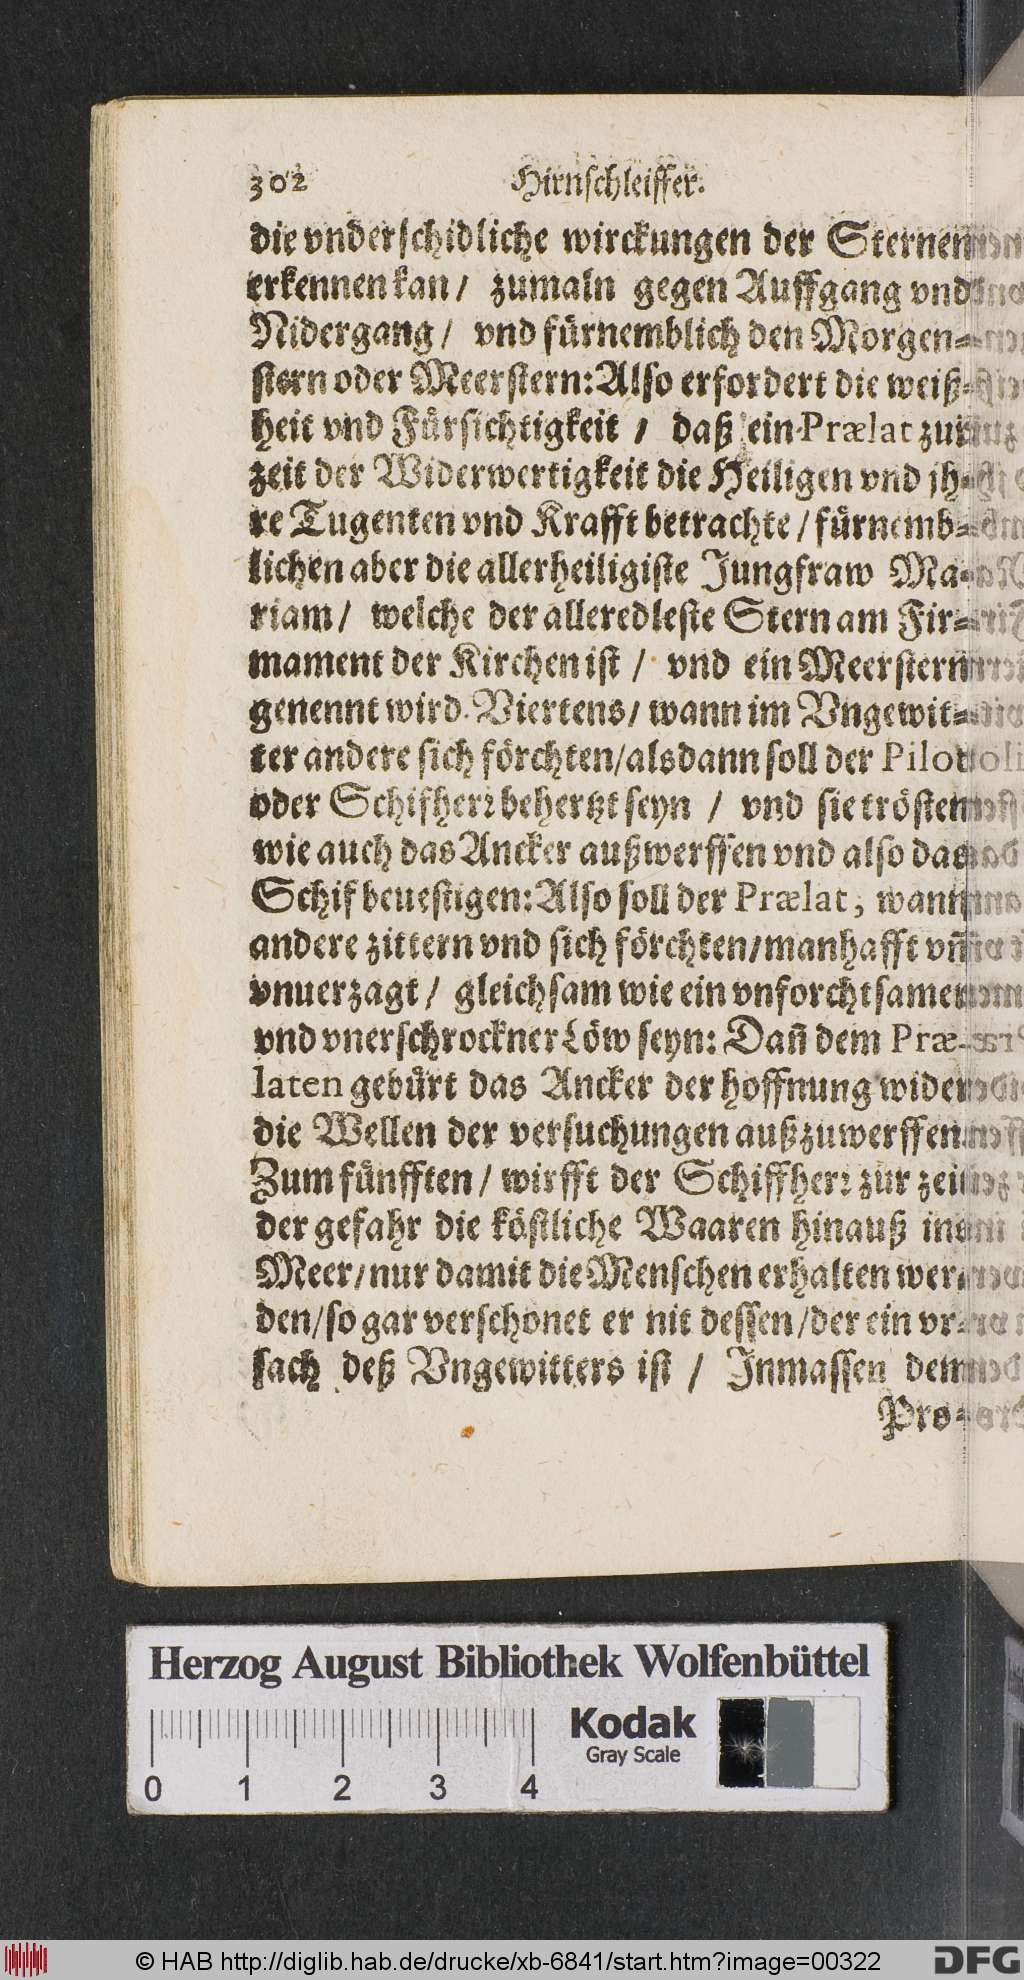 302 Hirnschleiffer.
die vnderschidliche wirckungen der Sternen
erkennen kan / zumaln gegen Auffgang vnd
Nidergang / vnd fürnemblich den Morgen-
stern oder Meerstern: Also erfordert die weiß-
heit vnd Fürsichtigkeit / daß ein Prælat zur
zeit der Widerwertigkeit die Heiligen vnd jh-
re Tugenten vnd Krafft betrachte / fürnemb-
lichen aber die allerheiligiste Jungfraw Ma-
riam / welche der alleredleste Stern am Fir-
mament der Kirchen ist / vnd ein Meerstern
genennt wird. Viertens / wann im Vngewit-
ter andere sich förchten / alsdann soll der Pilot
oder Schifherr behertzt seyn / vnd sie trösten
wie auch das Ancker außwerffen vnd also das
Schif beuestigen: Also soll der Prælat, wann
andere zittern vnd sich förchten / manhafft vñ
vnuerzagt / gleichsam wie ein vnforchtsamer
vnd vnerschrockner Löw seyn: Dañ dem Præ-
laten gebürt das Ancker der hoffnung wider
die Wellen der versuchungen außzuwerffen
Zum fünfften / wirfft der Schiffherr zur zeit
der gefahr die köstliche Waaren hinauß ins
Meer / nur damit die Menschen erhalten wer-
den / so gar verschonet er nit dessen / der ein vr-
sach deß Vngewitters ist / Inmassen dem
Pro-
Herzog August Bibliothek Wolfenbüttel
Kodak
Gray Scale
0 1 2 3 4
© HAB http://diglib.hab.de/drucke/xb-6841/start.htm?image=00322 DFG